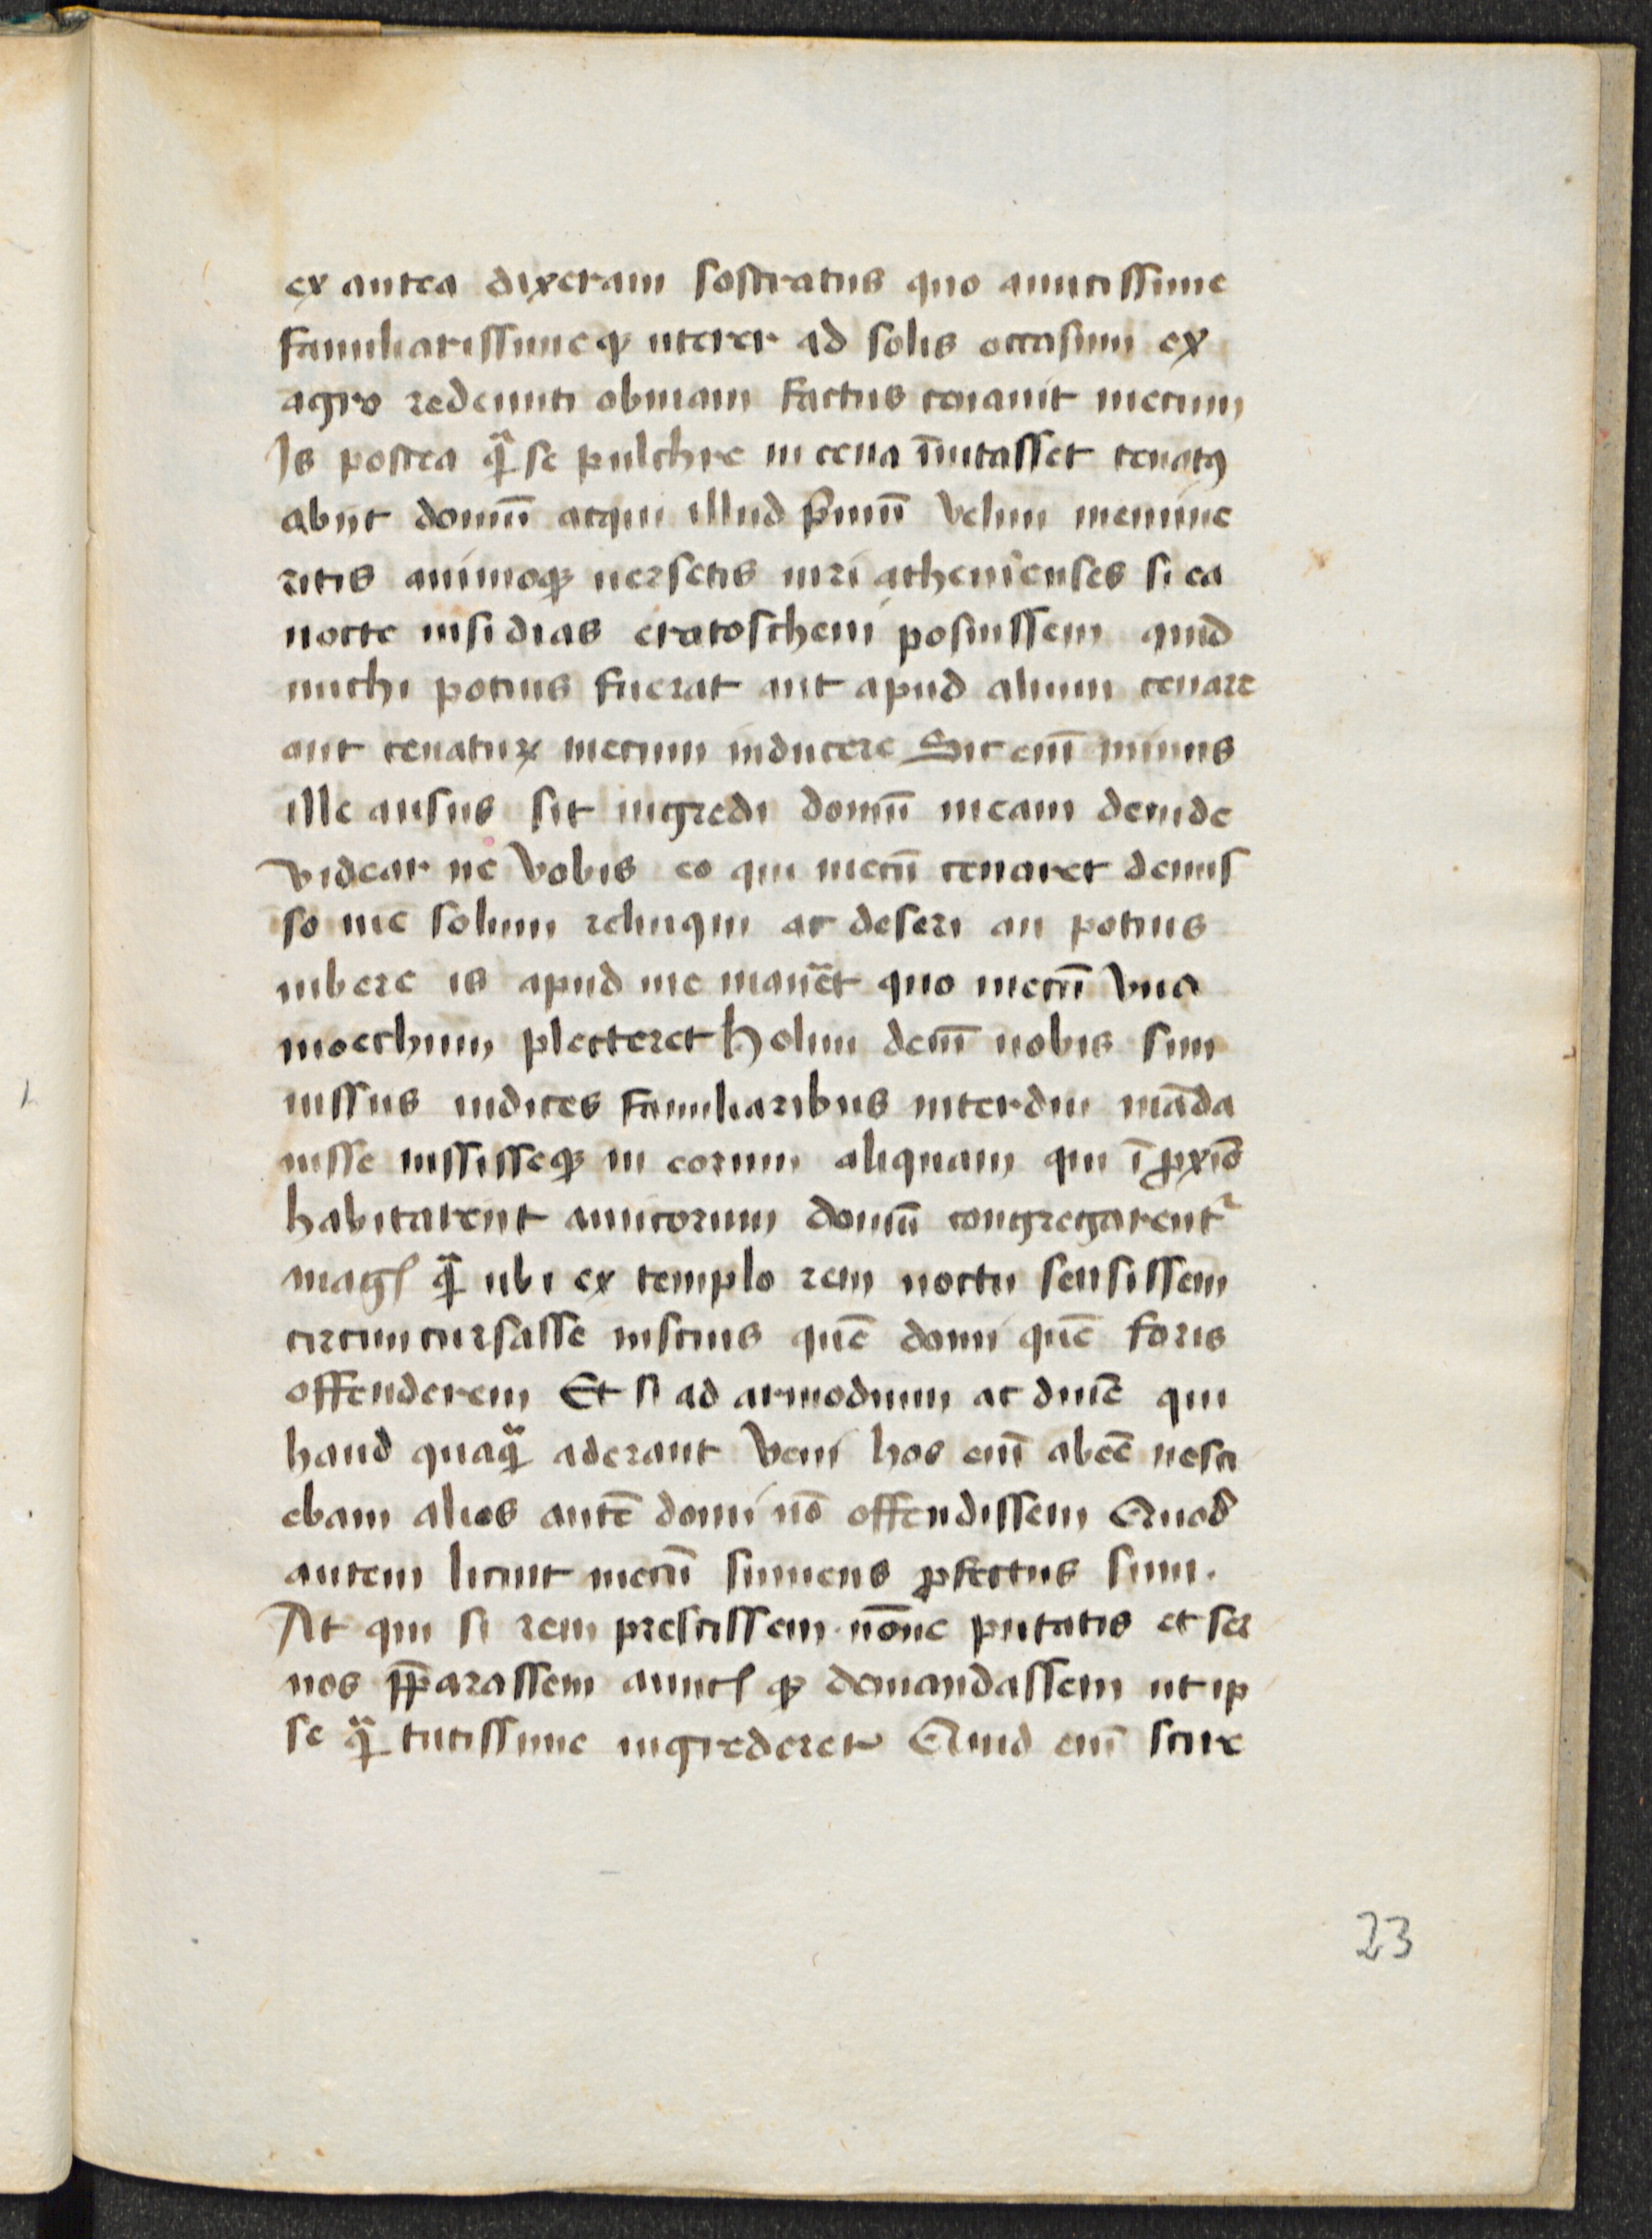 ex antea dixeram sostratus quo amicissime
familiarissimeqꝫ uterer ad solis occasum ex
agro redeunti obuiam factus cenauit mecum
Is postea q̃ se pulchre in cena īuitasset cenatqꝫ
abijt domū atqui illud p̃mū velim memine
ritis animoqꝫ uersetis uiri athenienses si ea
nocte insidias eratostheni posuissem quid
michi potius fuerat aut apud alium cenare
aut cenaturꝫ mecum inducere Sic enī minus
ille ausus sit ingredi domū meam deinde
videar ne vobis eo qui mecū cenaret demis
so me solum relinqui ac deseri an potius
iubere is apud me manēt quo mecū vna
moechum plecteret holim demū uobis sim
iussus iudices familiaribus interdiu māda
uisse iussisseqꝫ in eorum aliquam qui ī ꝓxīo
habitarent amicorum domū congregarentᷣ
magꝭ q̃ ubi ex templo rem noctu sensissem
circumcursasse inscius quē domi quē foris
offenderem Et si ad armodium ac diuē qui
haud quaq̃ aderant veni hos enī abeē nesci
ebam alios autē domi nō offendissem Quod
autem licuit mecū sumens ꝓfectus sum.
At qui si rem prescissem nōne putatis et ser
uos p̄pararassem amicꝭ qꝫ demandassem ut ip
se q̃ tutissime ingrederer Quid enī scire
23